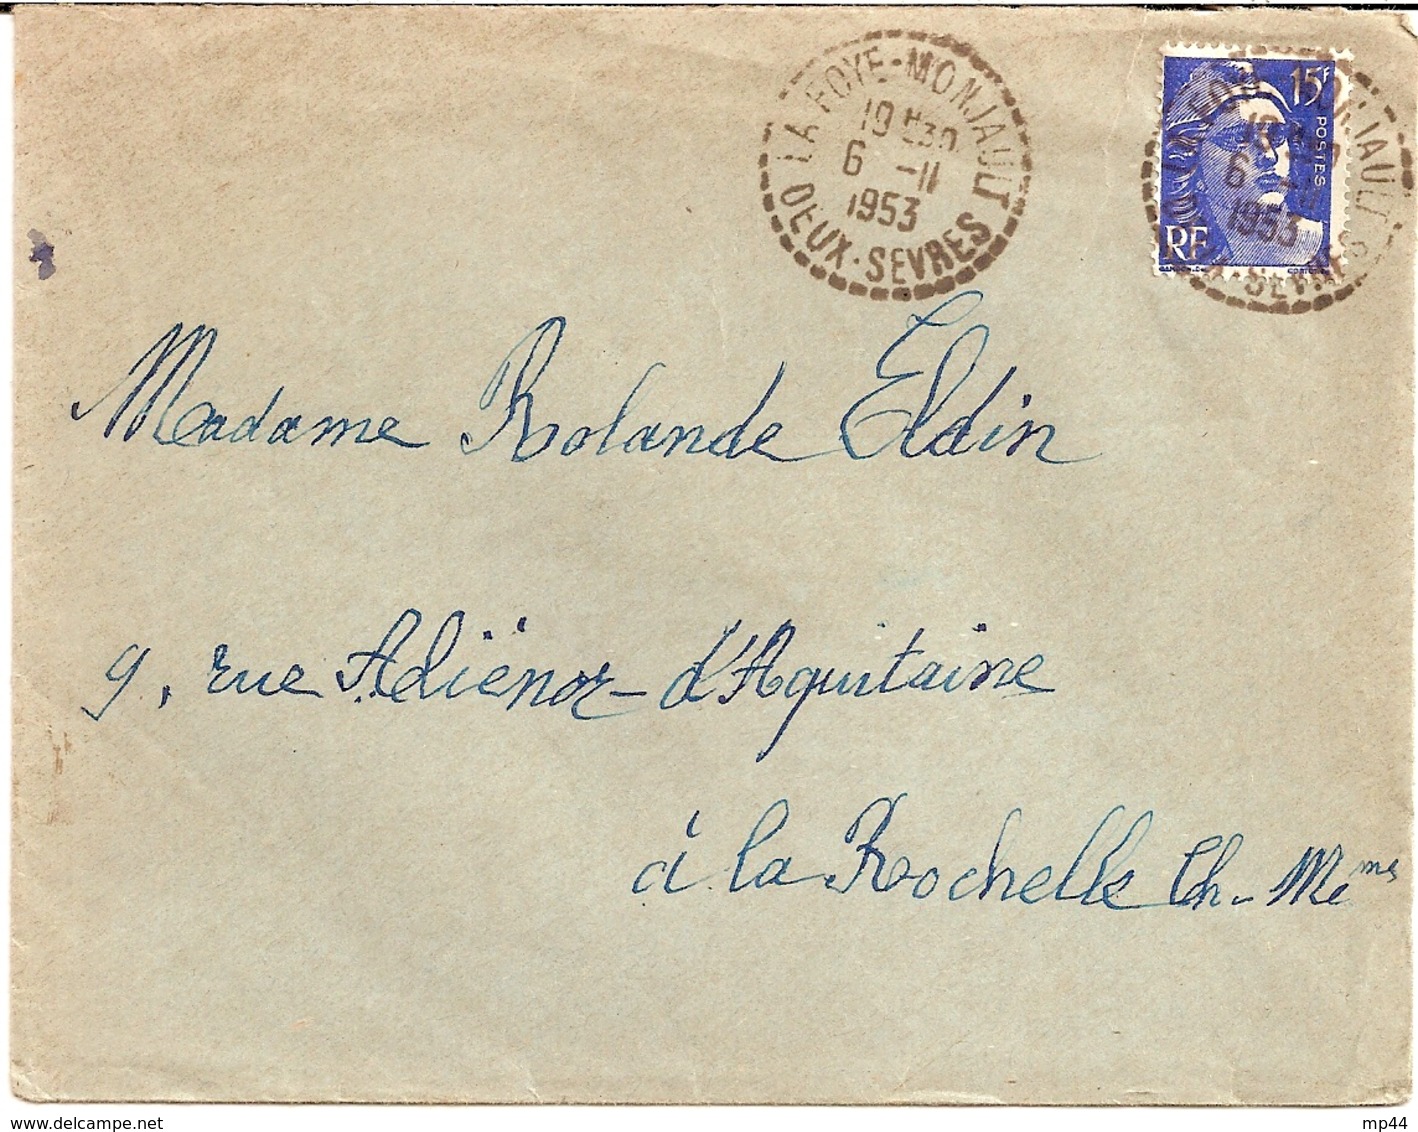 LA FOYE-MONJAULT
19 H30
6 -11
1953
DEUX-SEVRES
15F
POSTES
RF
Madame Rolande Eldin
9, rue Aliënor-d'Aquitaine
à la Rochelle Ch-Mme
www.delcampe.net
mp44